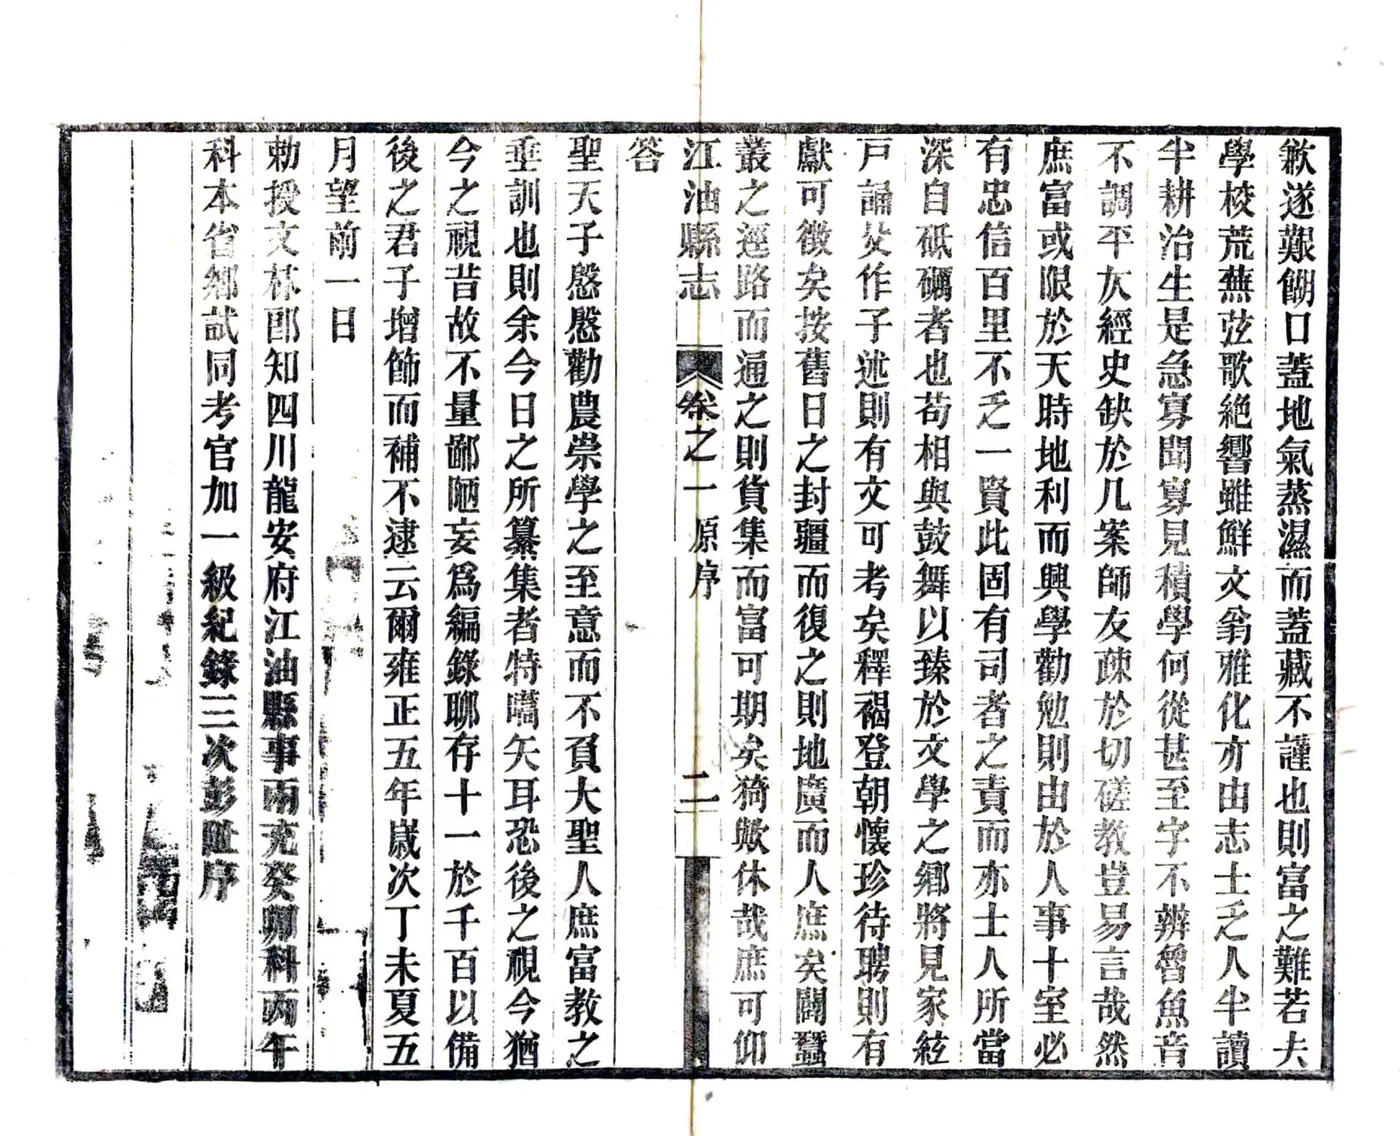 歉遂艱餬口蓋地氣蒸濕而蓋藏不謹也則富之難若夫
學校荒蕪弦歌絶響雖鮮文翁雅化亦由志士乏人半讀
半耕治生是急寡聞寡見積學何從甚至字不辨魯魚音
不調平仄經史缺於几案師友疎於切磋教豈易言哉然
庶富或限於天時地利而興學勸勉則由於人事十室必
有忠信百里不乏一賢此固有司者之責而亦士人所當
深自砥礪者也苟相與鼓舞以臻於文學之鄉將見家絃
戸誦父作子述則有文可考矣釋褐登朝懷珍待聘則有
獻可徵矣按舊日之封疆而復之則地廣而人庶矣闢蠶
叢之逕路而通之則貨集而富可期矣猗歟休哉庶可仰
江油縣志 卷之一 原序 二
答
聖天子慇慇勸農崇學之至意而不負大聖人庶富教之
垂訓也則余今日之所纂集者特嚆矢耳恐後之視今猶
今之視昔故不量鄙陋妄爲編錄聊存十一於千百以備
後之君子增飾而補不逮云爾雍正五年歲次丁未夏五
月望前一日
勅授文林郎知四川龍安府江油縣事兩充癸卯科丙午
科本省鄉試同考官加一級紀錄三次彭阯序